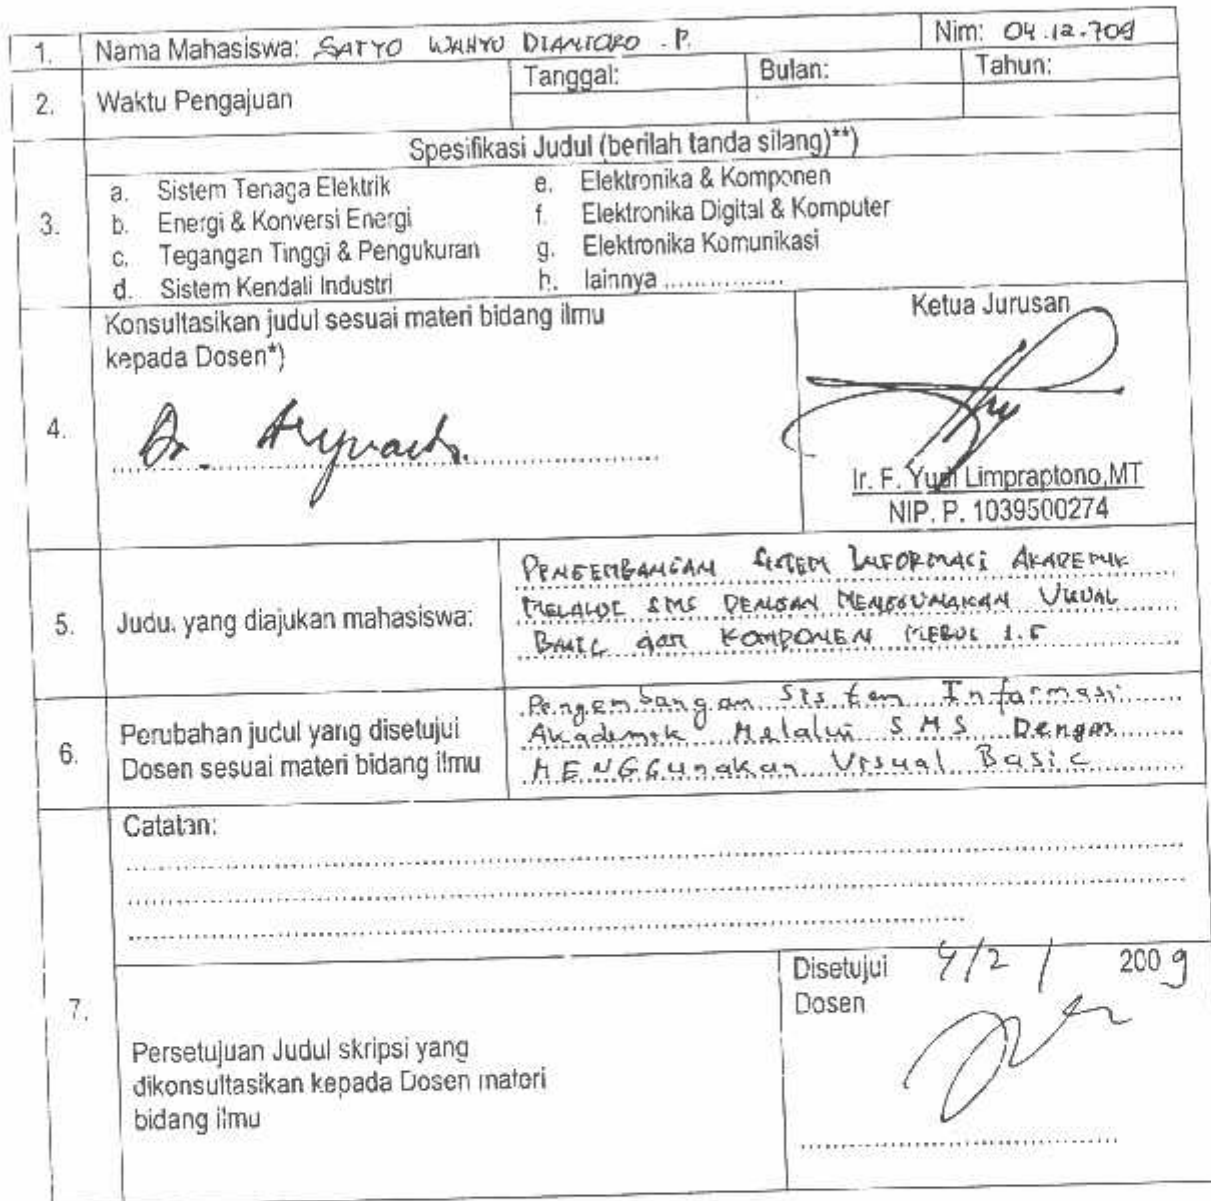 1. Nama Mahasiswa: SATYO WAHYU DIANTORO .P. Nim: 04.12.709
2. Waktu Pengajuan Tanggal: Bulan: Tahun:
3. Spesifikasi Judul (berilah tanda silang)**)
a. Sistem Tenaga Elektrik e. Elektronika & Komponen
b. Energi & Konversi Energi f. Elektronika Digital & Komputer
c. Tegangan Tinggi & Pengukuran g. Elektronika Komunikasi
d. Sistem Kendali Industri h. lainnya ................
4. Konsultasikan judul sesuai materi bidang ilmu
kepada Dosen*)
Dr.
Ketua Jurusan
Ir. F. Yudi Limpraptono,MT
NIP. P. 1039500274
5. Judul yang diajukan mahasiswa:
PENGEMBANGAN SISTEM INFORMASI AKADEMIK
MELALUI SMS DENGAN MENGGUNAKAN VISUAL
BASIC dan KOMPONEN 1.5
6. Perubahan judul yang disetujui
Dosen sesuai materi bidang ilmu
Pengembangan Sistem Informasi
Akademik Melalui SMS Dengan
MENGGunakan Visual Basic
7. Catatan:
Persetujuan Judul skripsi yang
dikonsultasikan kepada Dosen materi
bidang ilmu
Disetujui 4/2 / 2009
Dosen